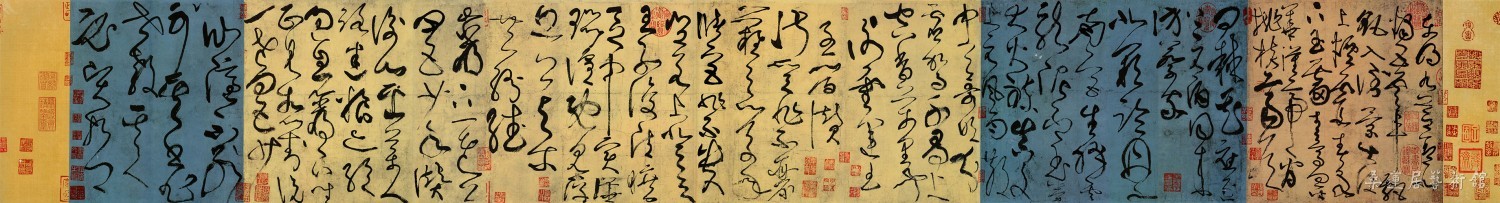 東明九芝蓋北
燭五雲車飄
飖入倒景出沒
上煙霞春泉
下玉霤青鳥向金
華漢帝看
桃核齊侯
問棘花應
逐上元酒同來
訪蔡家
北闕臨丹水
南宮生絳雲
龍泥印玉策
大火煉真文
上元風雨散
中天哥吹分
虛駕千尋上
空香萬里聞
謝靈運王
子晉贊
淑質非不麗
難之以萬年
儲宮非不貴
豈若上登天
王子復清曠
區中實譁
囂喧既見浮
丘公與爾
共紛繙
巖下一老公
四五少年贊
衡山採藥人
路迷糧亦絕
過息巖下坐
正見相對說
一老四五少
仙隱不可別
其書非世教
其人必賢哲
桑蓮居藝術館